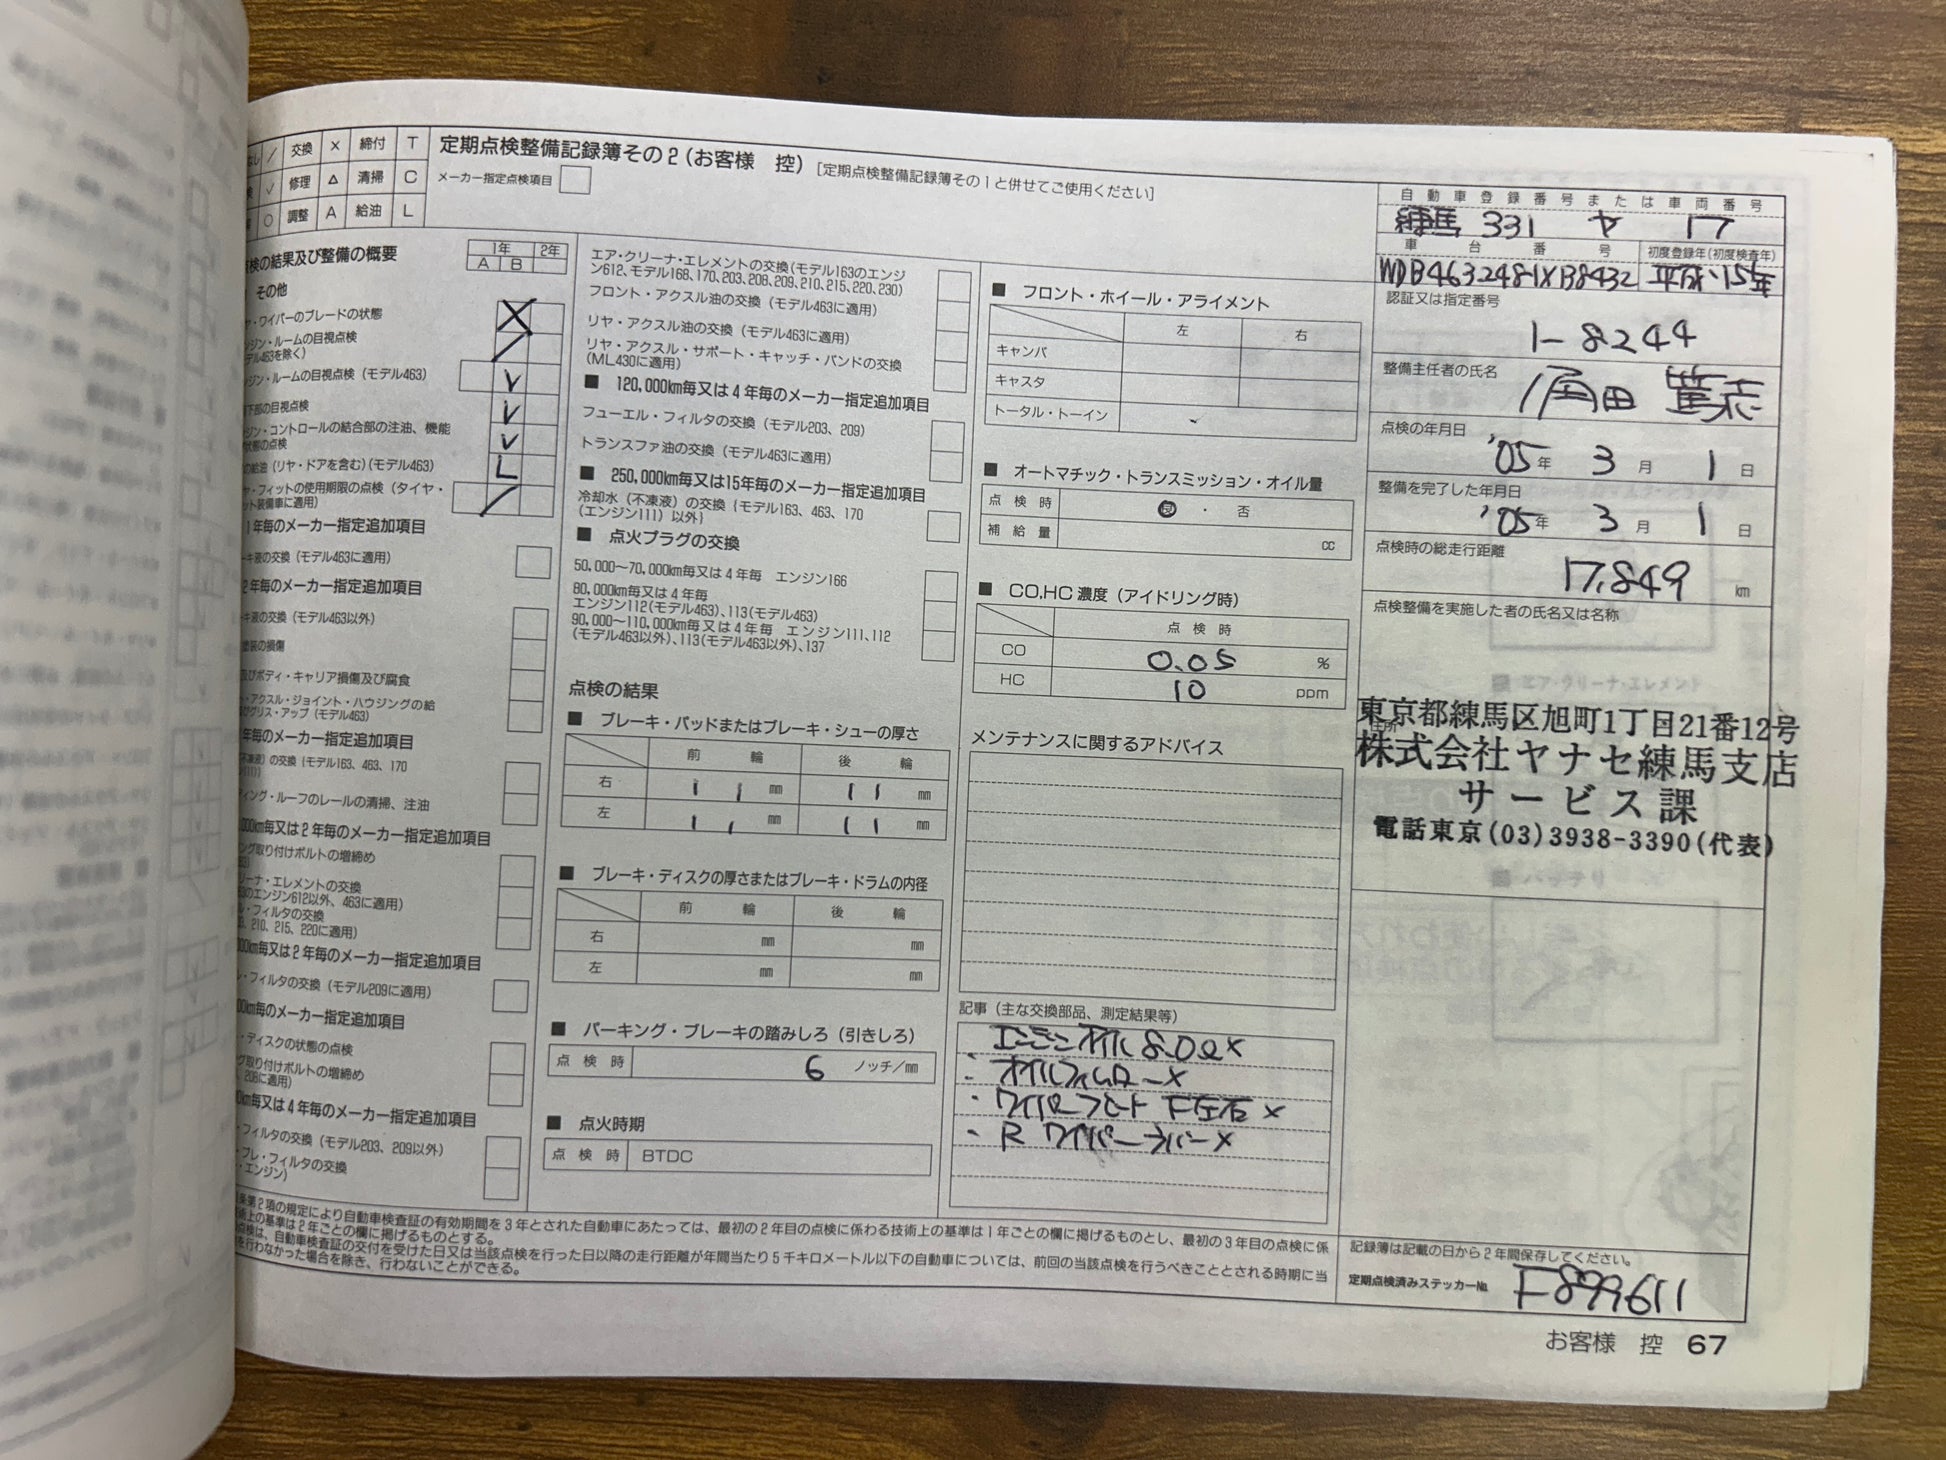 なし / 交換 × 締付 T
検 ✓ 修理 △ 清掃 C
○ 調整 A 給油 L
定期点検整備記録簿その2(お客様 控) [定期点検整備記録簿その1と併せてご使用ください]
メーカー指定点検項目
点検の結果及び整備の概要
1年 2年
A B
その他
ヤ・ワイパーのブレードの状態 X
ンジン・ルームの目視点検 /
デル463を除く)
ンジン・ルームの目視点検(モデル463) ✓
下部の目視点検 ✓
ンジン・コントロールの結合部の注油、機能 ✓
状態の点検
の給油(リヤ・ドアを含む)(モデル463) L
ヤ・フィットの使用期限の点検(タイヤ・ /
ット装備車に適用)
1年毎のメーカー指定追加項目
ーキ液の交換(モデル463に適用)
2年毎のメーカー指定追加項目
ーキ液の交換(モデル463以外)
塗装の損傷
及びボディ・キャリア損傷及び腐食
ト・アクスル・ジョイント・ハウジングの給
びグリス・アップ(モデル463)
年毎のメーカー指定追加項目
不凍液)の交換{モデル163、463、170
ン111)}
ディング・ルーフのレールの清掃、注油
,000km毎又は2年毎のメーカー指定追加項目
ング取り付けボルトの増締め
リーナ・エレメントの交換
3のエンジン612以外、463に適用)
ル・フィルタの交換
、210、215、220に適用)
000km毎又は2年毎のメーカー指定追加項目
レ・フィルタの交換(モデル209に適用)
00km毎のメーカー指定追加項目
・ディスクの状態の点検
グ取り付けボルトの増締め
、208に適用)
0km毎又は4年毎のメーカー指定追加項目
・フィルタの交換(モデル203、209以外)
・プレ・フィルタの交換
・エンジン)
エア・クリーナ・エレメントの交換(モデル163のエンジ
ン612、モデル168、170、203、208、209、210、215、220、230)
フロント・アクスル油の交換(モデル463に適用)
リヤ・アクスル油の交換(モデル463に適用)
リヤ・アクスル・サポート・キャッチ・バンドの交換
(ML430に適用)
■ 120,000km毎又は4年毎のメーカー指定追加項目
フューエル・フィルタの交換(モデル203、209)
トランスファ油の交換(モデル463に適用)
■ 250,000km毎又は15年毎のメーカー指定追加項目
冷却水(不凍液)の交換{モデル163、463、170
(エンジン111)以外}
■ 点火プラグの交換
50,000〜70,000km毎又は4年毎 エンジン166
80,000km毎又は4年毎
エンジン112(モデル463)、113(モデル463)
90,000〜110,000km毎又は4年毎 エンジン111、112
(モデル463以外)、113(モデル463以外)、137
点検の結果
■ ブレーキ・パッドまたはブレーキ・シューの厚さ
前 輪 後 輪
右 11 mm 11 mm
左 11 mm 11 mm
■ ブレーキ・ディスクの厚さまたはブレーキ・ドラムの内径
前 輪 後 輪
右 mm mm
左 mm mm
■ パーキング・ブレーキの踏みしろ(引きしろ)
点 検 時 6 ノッチ/mm
■ 点火時期
点 検 時 BTDC
■ フロント・ホイール・アライメント
左 右
キャンバ
キャスタ
トータル・トーイン
■ オートマチック・トランスミッション・オイル量
点 検 時 良 ・ 否
補 給 量 cc
■ CO,HC濃度(アイドリング時)
点 検 時
CO 0.05 %
HC 10 ppm
メンテナンスに関するアドバイス
記事(主な交換部品、測定結果等)
エンジンオイル 8.0ℓ×
・オイルフィルター×
・R ワイパーラバー×
自動車登録番号または車両番号
練馬 331 ヤ 17
車 台 番 号 初度登録年(初度検査年)
WDB4632481XB8432 平成・15年
認証又は指定番号
1-8244
整備主任者の氏名
角田 篤志
点検の年月日
'05年 3月 1日
整備を完了した年月日
'05年 3月 1日
点検時の総走行距離
17,849 km
点検整備を実施した者の氏名又は名称
住所
東京都練馬区旭町1丁目21番12号
株式会社ヤナセ練馬支店
サービス課
電話東京(03)3938-3390(代表)
条第2項の規定により自動車検査証の有効期間を3年とされた自動車にあたっては、最初の2年目の点検に係わる技術上の基準は1年ごとの欄に掲げるものとし、最初の3年目の点検に係
術上の基準は2年ごとの欄に掲げるものとする。
点検は、自動車検査証の交付を受けた日又は当該点検を行った日以降の走行距離が年間当たり5千キロメートル以下の自動車については、前回の当該点検を行うべきこととされる時期に当
を行わなかった場合を除き、行わないことができる。
記録簿は記載の日から2年間保存してください。
定期点検済みステッカー№ F899611
お客様 控 67